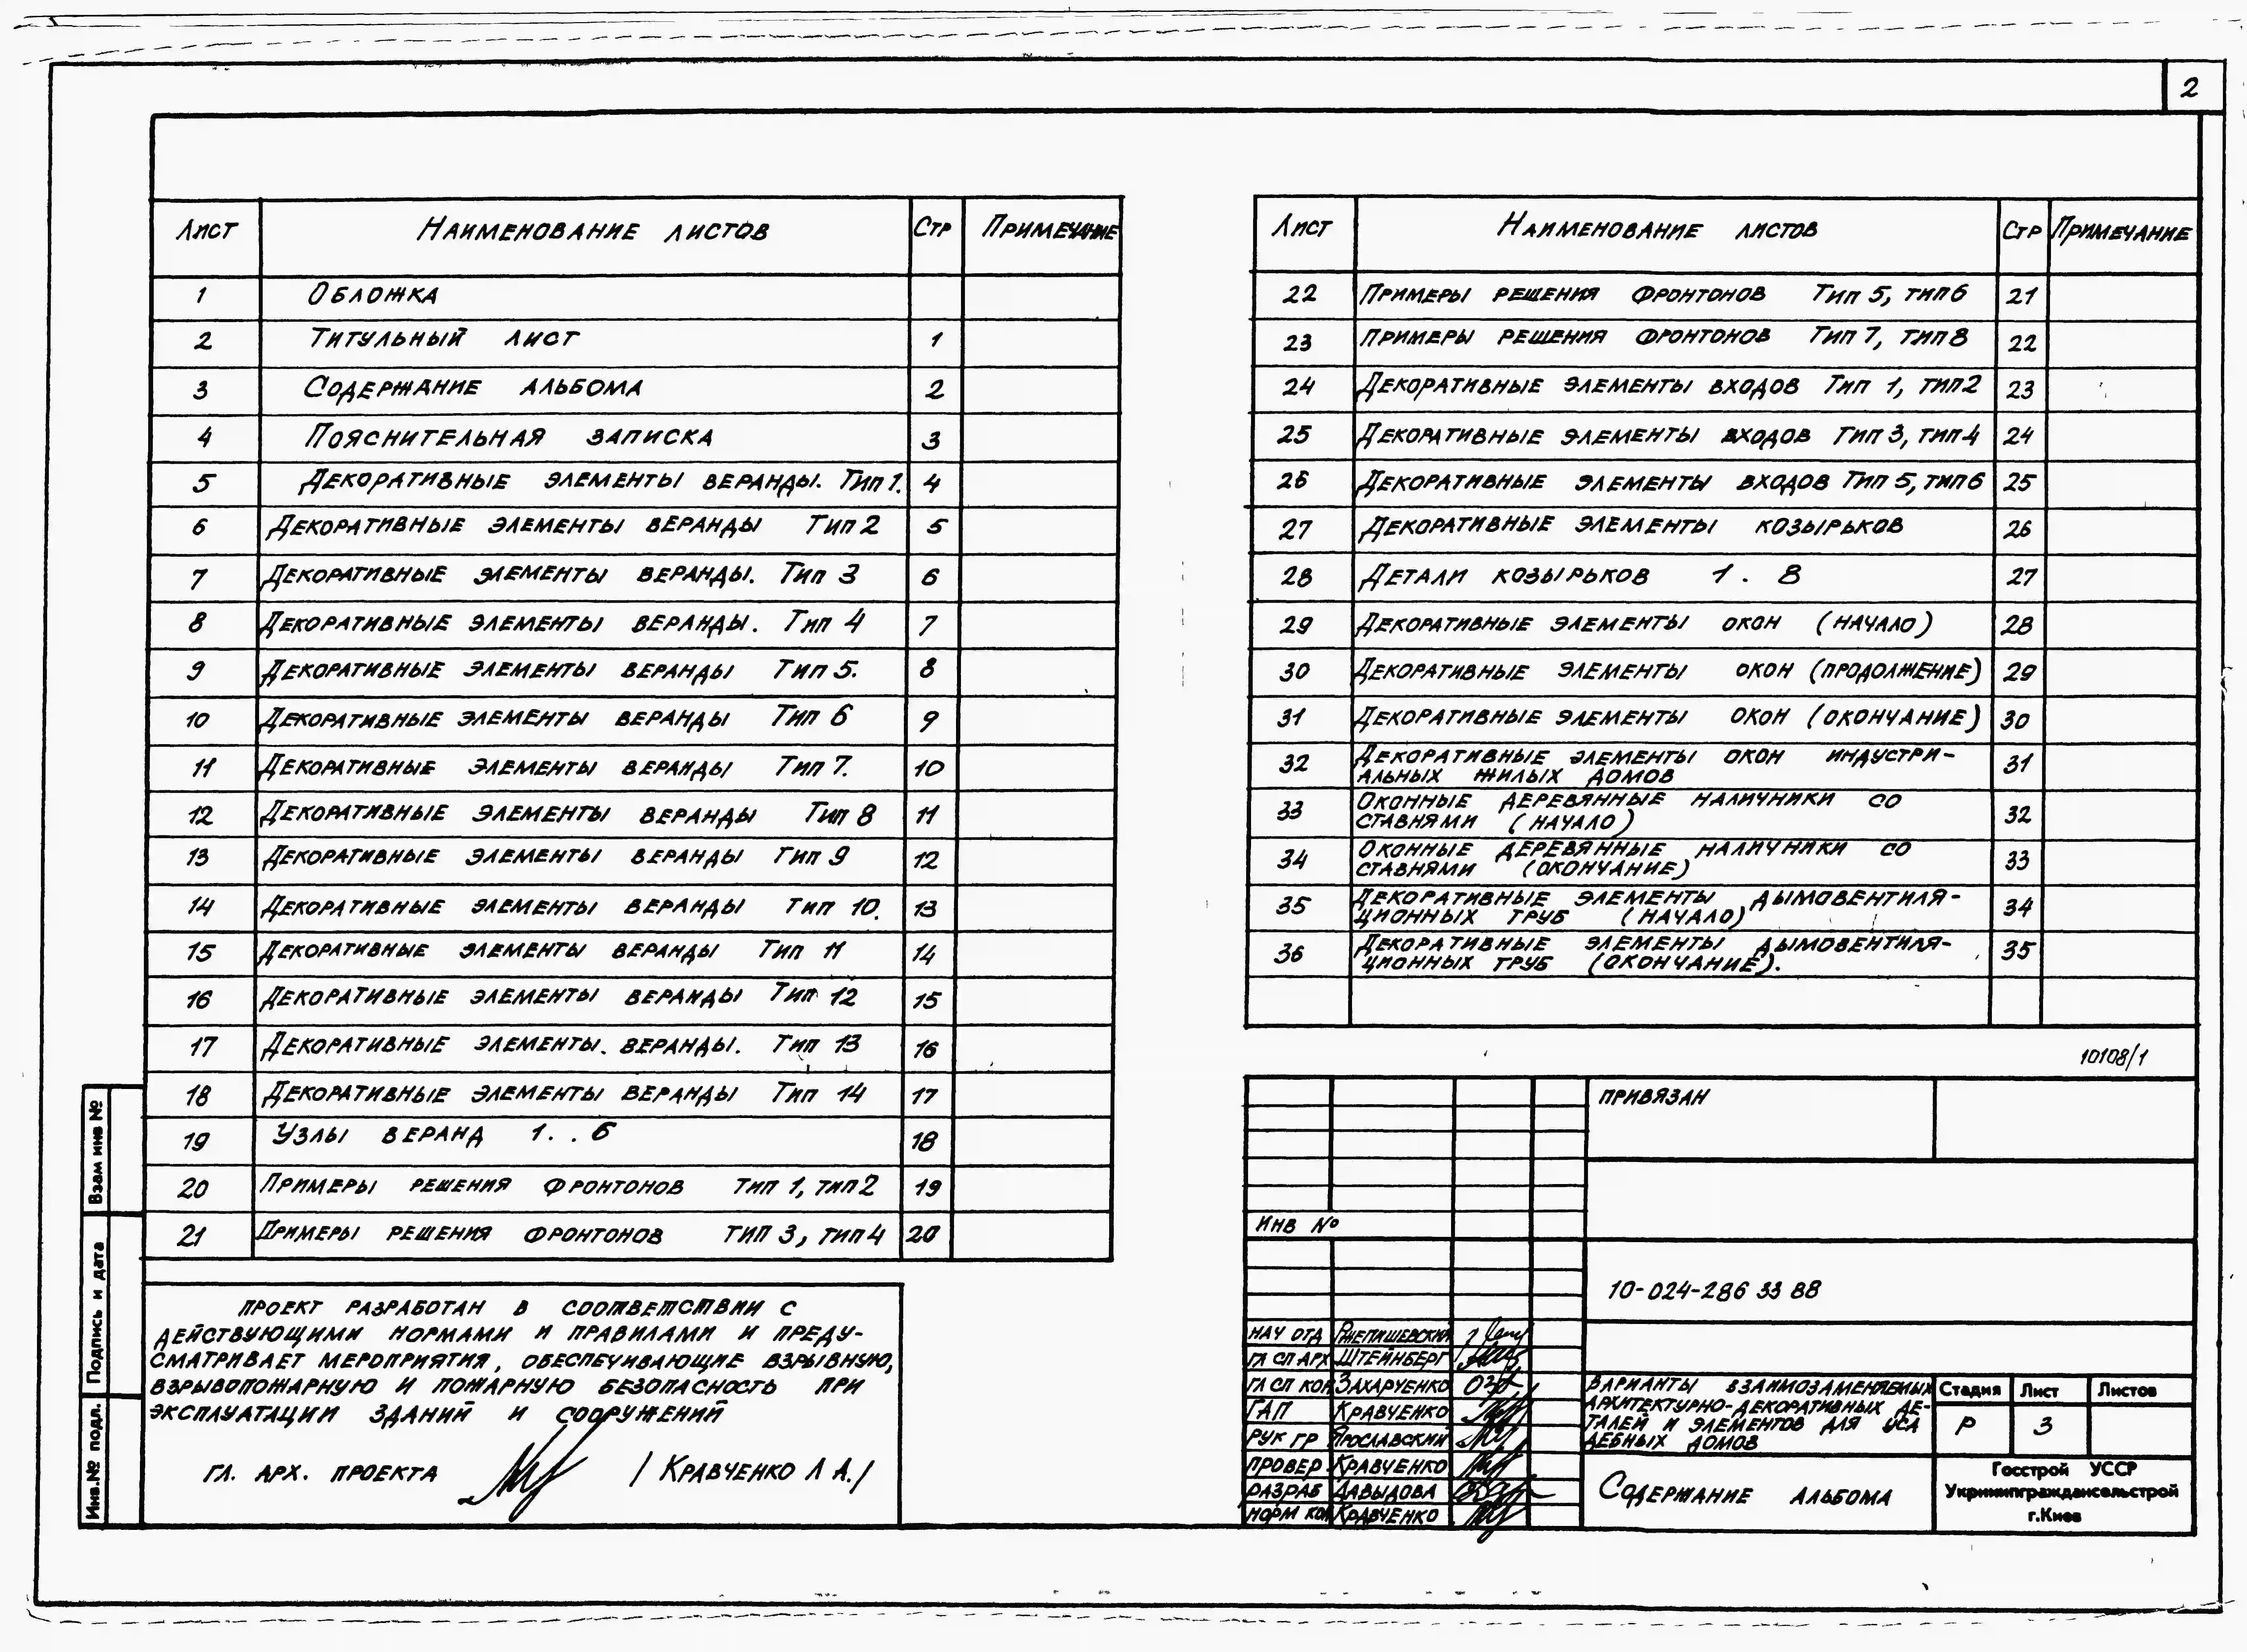 2
Лист Наименование листов Стр Примечание
1 Обложка
2 Титульный лист 1
3 Содержание альбома 2
4 Пояснительная записка 3
5 Декоративные элементы веранды. Тип 1. 4
6 Декоративные элементы веранды Тип 2 5
7 Декоративные элементы веранды. Тип 3 6
8 Декоративные элементы веранды. Тип 4 7
9 Декоративные элементы веранды Тип 5. 8
10 Декоративные элементы веранды Тип 6 9
11 Декоративные элементы веранды Тип 7. 10
12 Декоративные элементы веранды Тип 8 11
13 Декоративные элементы веранды Тип 9 12
14 Декоративные элементы веранды тип 10. 13
15 Декоративные элементы веранды Тип 11 14
16 Декоративные элементы веранды Тип 12 15
17 Декоративные элементы. веранды. Тип 13 16
18 Декоративные элементы веранды Тип 14 17
19 Узлы веранд 1. . 6 18
20 Примеры решения фронтонов тип 1, тип 2 19
21 Примеры решения фронтонов тип 3, тип 4 20
Лист Наименование листов Стр Примечание
22 Примеры решения фронтонов Тип 5, тип 6 21
23 Примеры решения фронтонов Тип 7, тип 8 22
24 Декоративные элементы входов Тип 1, тип 2 23
25 Декоративные элементы входов Тип 3, тип 4 24
26 Декоративные элементы входов Тип 5, тип 6 25
27 Декоративные элементы козырьков 26
28 Детали козырьков 1 . 8 27
29 Декоративные элементы окон (начало) 28
30 Декоративные элементы окон (продолжение) 29
31 Декоративные элементы окон (окончание) 30
32 Декоративные элементы окон индустри-
альных жилых домов 31
33 Оконные деревянные наличники со
ставнями (начало) 32
34 Оконные деревянные наличники со
ставнями (окончание) 33
35 Декоративные элементы дымовентиля-
ционных труб (начало) 34
36 Декоративные элементы дымовентиля-
ционных труб (окончание). 35
10108/1
Проект разработан в соответствии с
действующими нормами и правилами и преду-
сматривает мероприятия, обеспечивающие взрывную,
взрывопожарную и пожарную безопасность при
эксплуатации зданий и сооружений
гл. арх. проекта / Кравченко Л А. /
Взам инв №
Подпись и дата
Инв.№ подл.
Привязан
Инв №
10-024-286 33 88
Нач отд Ржепишевский
Гл сп арх Штейнберг
Гл сп кон Захарченко
ГАП Кравченко
Рук гр Ярославский
Провер Кравченко
Разраб Давыдова
Норм кон Кравченко
Варианты взаимозаменяемых
архитектурно-декоративных де-
талей и элементов для уса
дебных домов
Стадия Лист Листов
Р 3
Содержание альбома
Госстрой УССР
Укрниипграждансельстрой
г.Киев